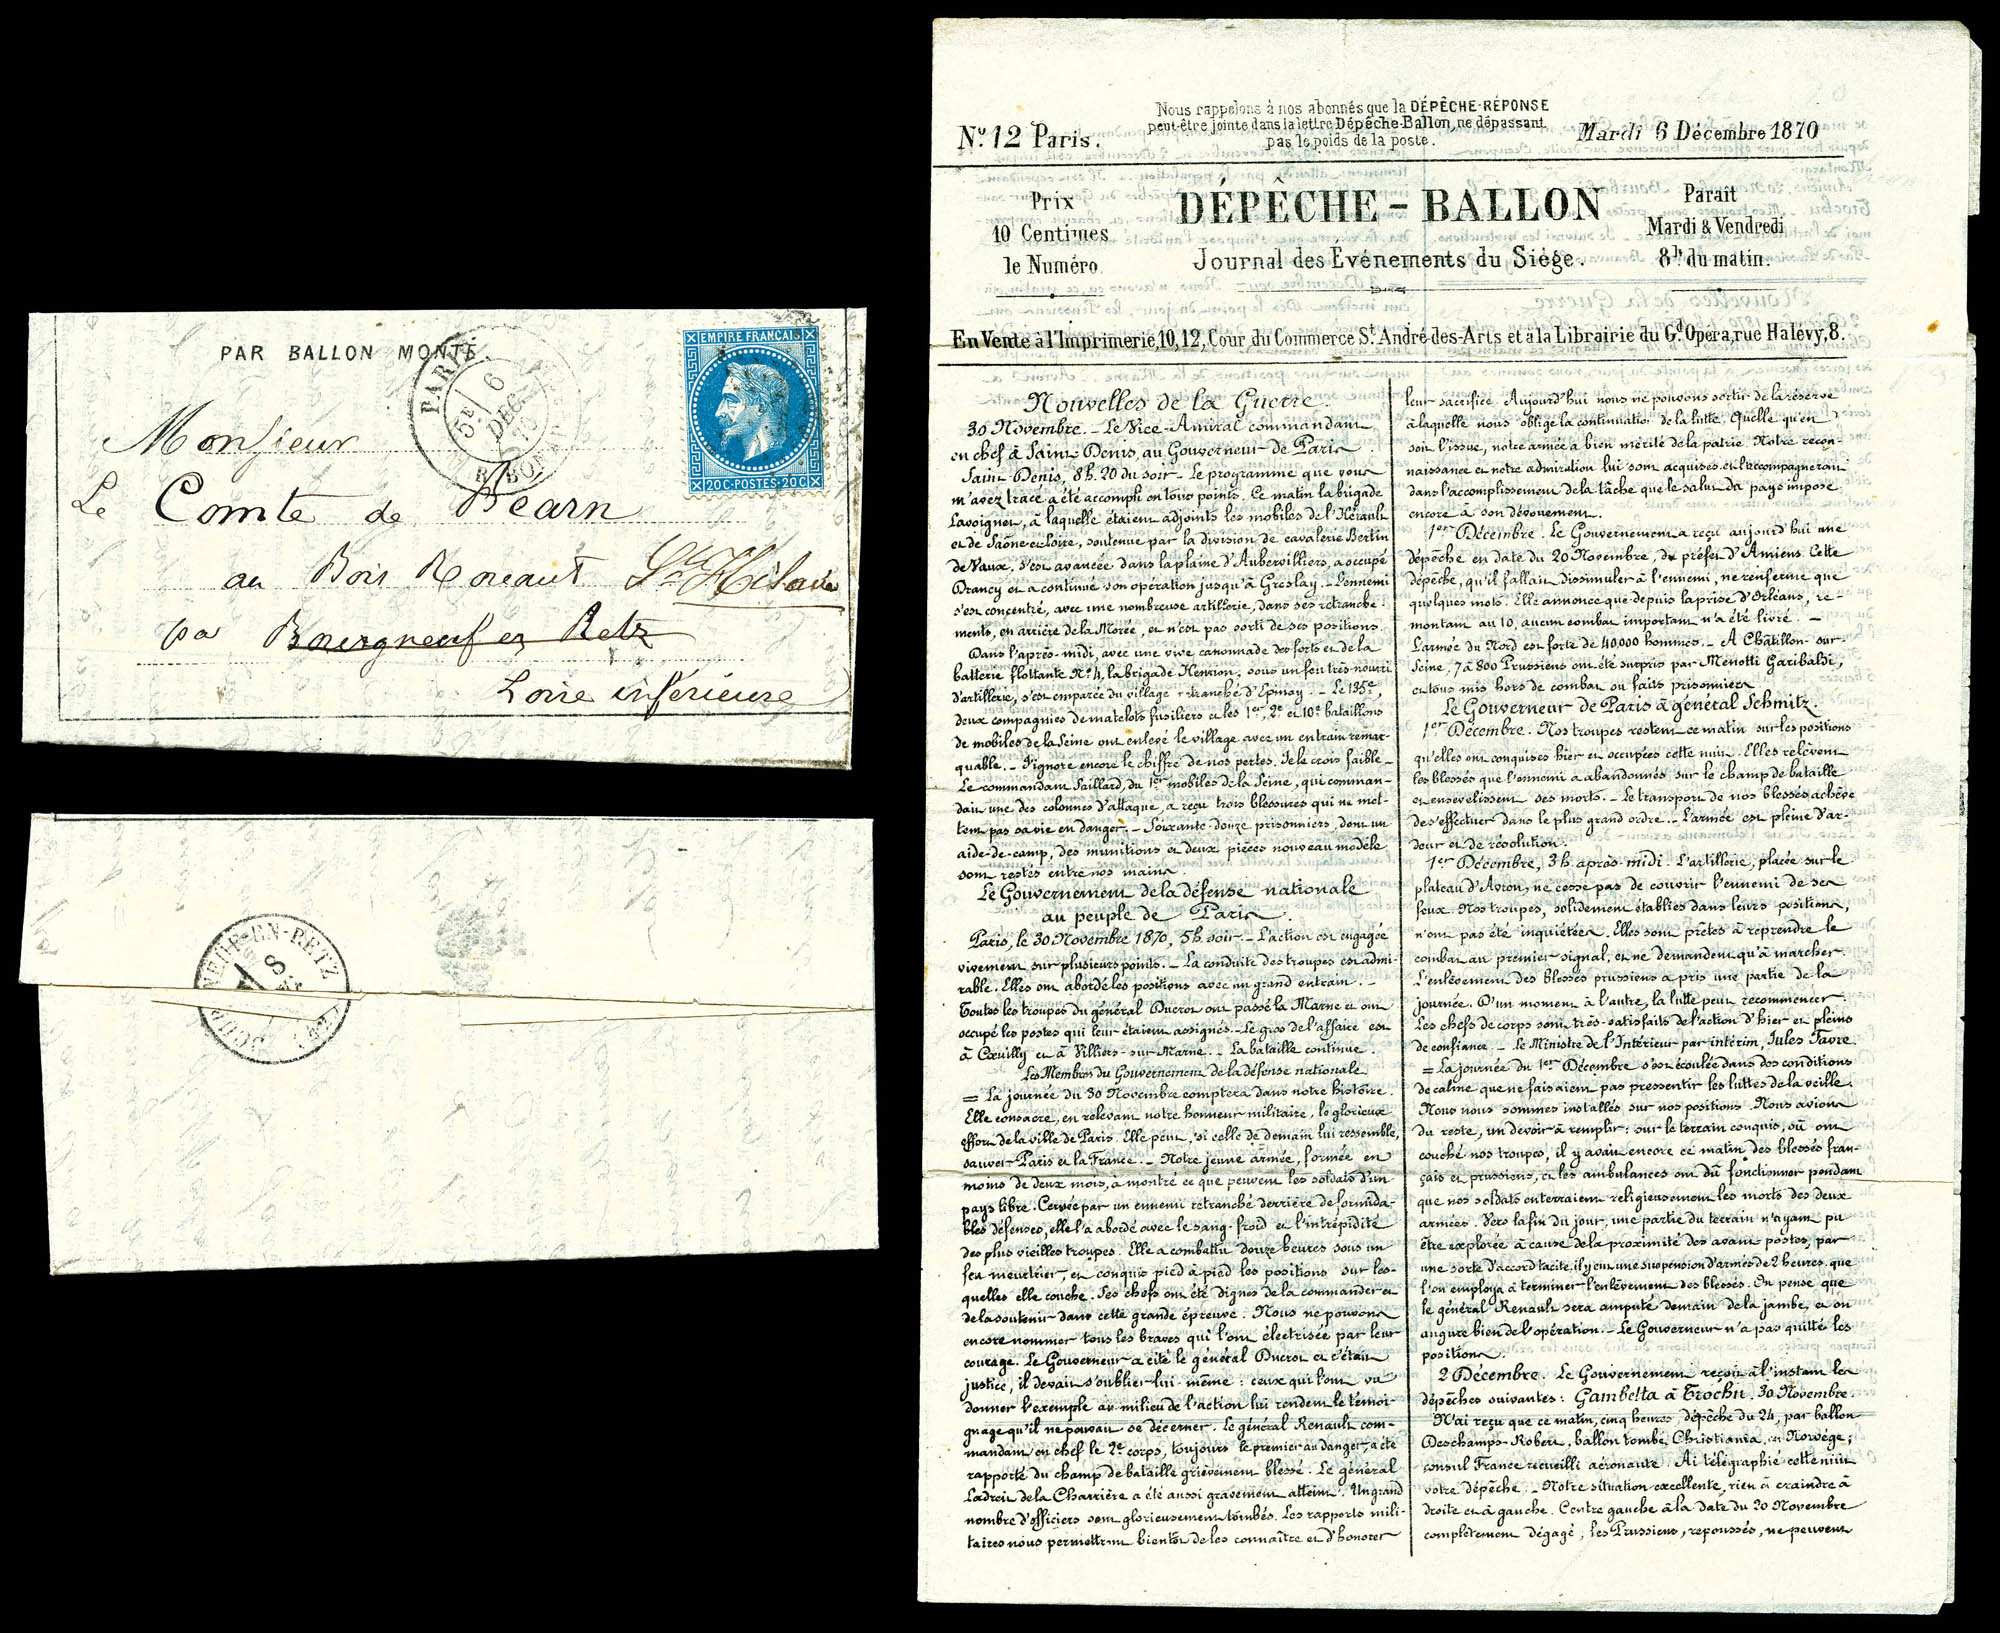 PAR BALLON MONTÉ
PARIS
5E 6
DEC.
70
R. BONAP
EMPIRE FRANÇAIS
20C·POSTES·20C
Monsieur
Le Comte de Béarn
au Bois Roucaut Ste Hilaire
par Bourgneuf en Retz
Loire inférieure
NEUF-EN-RETZ
8
N° 12 Paris.
Nous rappelons à nos abonnés que la DÉPÊCHE-RÉPONSE
peut-être jointe dans la lettre Dépêche-Ballon, ne dépassant
pas le poids de la poste.
Mardi 6 Décembre 1870
Prix
10 Centimes
le Numéro
DÉPÊCHE-BALLON
Journal des Événements du Siège.
Paraît
Mardi & Vendredi
8h du matin.
En Vente à l'Imprimerie, 10, 12, Cour du Commerce St André-des-Arts et à la Librairie du Gd Opera, rue Halévy, 8.
Nouvelles de la Guerre.
30 Novembre. – Le Vice-Amiral commandant
en chef à Saint-Denis, au Gouverneur de Paris.
Saint-Denis, 8h. 20 du soir – Le programme que vous
m'avez tracé a été accompli en tous points. Ce matin la brigade
Lavoignet, à laquelle étaient adjoints les mobiles de l'Hérault
et de Saône-et-Loire, soutenue par la division de cavalerie Bertin
de Vaux, s'est avancée dans la plaine d'Aubervilliers, a occupé
Drancy et a continué son opération jusqu'à Groslay. – L'ennemi
s'est concentré, avec une nombreuse artillerie, dans ses retranche-
ments, en arrière de la Morée, et n'est pas sorti de ses positions.
Dans l'après-midi, avec une vive canonnade des forts et de la
batterie flottante No 4, la brigade Henrion, sous un feu très nourri
d'artillerie, s'est emparée du village retranché d'Epinay. – Le 135e,
deux compagnies de matelots fusiliers et les 1er, 2e et 10e bataillons
de mobiles de la Seine ont enlevé le village avec un entrain remar-
quable. – J'ignore encore le chiffre de nos pertes. Je le crois faible –
Le commandant Saillard, du 1er mobiles de la Seine, qui comman-
dait une des colonnes d'attaque, a reçu trois blessures qui ne met-
tent pas sa vie en danger. – Soixante-douze prisonniers, dont un
aide-de-camp, des munitions et deux pièces nouveau modèle
sont restés entre nos mains.
Le Gouvernement de la défense nationale
au peuple de Paris.
Paris, le 30 Novembre 1870, 5h. soir. – L'action est engagée
vivement sur plusieurs points. – La conduite des troupes est admi-
rable. Elles ont abordé les positions avec un grand entrain. –
Toutes les troupes du général Ducrot ont passé la Marne et ont
occupé les postes qui leur étaient assignés. – Le gros de l'affaire est
à Cœuilly et à Villiers-sur-Marne. – La bataille continue.
Les Membres du Gouvernement de la défense nationale
= La journée du 30 Novembre comptera dans notre histoire.
Elle consacre, en relevant notre honneur militaire, le glorieux
effort de la ville de Paris. Elle peut, si celle de demain lui ressemble,
sauver Paris et la France. – Notre jeune armée, formée en
moins de deux mois, a montré ce que peuvent les soldats d'un
pays libre. Cernée par un ennemi retranché derrière de formida-
bles défenses, elle l'a abordé avec le sang-froid et l'intrépidité
des plus vieilles troupes. Elle a combattu douze heures sous un
feu meurtrier, et conquis pied à pied les positions sur les-
quelles elle couche. Ses chefs ont été dignes de la commander et
de la soutenir dans cette grande épreuve. Nous ne pouvons
encore nommer tous les braves qui l'ont électrisée par leur
courage. Le Gouverneur a cité le général Ducrot et c'était
justice, il devait s'oublier lui-même : ceux qui l'ont vu
donner l'exemple au milieu de l'action lui rendent le témoi-
gnage qu'il ne pouvait se décerner. Le général Renault com-
mandant en chef le 2e corps, toujours le premier au danger, a été
rapporté du champ de bataille grièvement blessé. Le général
Ladreit de la Charrière a été aussi gravement atteint. Un grand
nombre d'officiers sont glorieusement tombés. Les rapports mili-
taires nous permettront bientôt de les connaître et d'honorer
leur sacrifice. Aujourd'hui nous ne pouvons sortir de la réserve
à laquelle nous oblige la continuation de la lutte. Quelle qu'en
soit l'issue, notre armée a bien mérité de la patrie. Notre recon-
naissance et notre admiration lui sont acquises et l'accompagneront
dans l'accomplissement de la tâche que le salut du pays impose
encore à son dévouement.
1er Décembre. Le Gouvernement a reçu aujourd'hui une
dépêche en date du 20 Novembre, du préfet d'Amiens. Cette
dépêche, qu'il fallait dissimuler à l'ennemi, ne renferme que
quelques mots. Elle annonce que depuis la prise d'Orléans, re-
montant au 10, aucun combat important n'a été livré. –
L'armée du Nord est forte de 40,000 hommes. – A Châtillon-sur-
Seine, 7 à 800 Prussiens ont été surpris par Menotti Garibaldi,
et tous mis hors de combat ou faits prisonniers
Le Gouverneur de Paris à général Schmitz.
1er Décembre. Nos troupes restent ce matin sur les positions
qu'elles ont conquises hier et occupées cette nuit. Elles relèvent
les blessés que l'ennemi a abandonnés sur le champ de bataille
et ensevelissent ses morts. – Le transport de nos blessés achève
de s'effectuer dans le plus grand ordre. – L'armée est pleine d'ar-
deur et de résolution.
1er Décembre, 3h. après-midi. L'artillerie, placée sur le
plateau d'Avron, ne cesse pas de couvrir l'ennemi de ses
feux. Nos troupes, solidement établies dans leurs positions,
n'ont pas été inquiétées. Elles sont prêtes à reprendre le
combat au premier signal, et ne demandent qu'à marcher.
L'enlèvement des blessés prussiens a pris une partie de la
journée. D'un moment à l'autre, la lutte peut recommencer.
Les chefs de corps sont très-satisfaits de l'action d'hier et pleins
de confiance. – Le Ministre de l'Intérieur par intérim, Jules Favre.
= La journée du 1er Décembre s'est écoulée dans des conditions
de calme que ne faisaient pas pressentir les luttes de la veille.
Nous nous sommes installés sur nos positions. Nous avions
du reste, un devoir à remplir : sur le terrain conquis, où ont
couché nos troupes, il y avait encore ce matin des blessés fran-
çais et prussiens, et les ambulances ont dû fonctionner pendant
que nos soldats enterraient religieusement les morts des deux
armées. Vers la fin du jour, une partie du terrain n'ayant pu
être explorée à cause de la proximité des avant postes, par
une sorte d'accord tacite, il y eut une suspension d'armes de 2 heures que
l'on employa à terminer l'enlèvement des blessés. On pense que
le général Renault sera amputé demain de la jambe, et on
augure bien de l'opération. – Le Gouverneur n'a pas quitté les
positions.
2 Décembre. Le Gouvernement reçoit à l'instant les
dépêches suivantes : Gambetta à Trochu. 30 Novembre.
N'ai reçu que ce matin, cinq heures, dépêche du 24, par ballon
Deschamps-Robert, ballon tombé Christiania, en Norwège ;
consul France recueilli aéronaute. Ai télégraphié cette nuit
votre dépêche. – Notre situation excellente, rien à craindre à
droite et à gauche. Centre gauche à la date du 20 Novembre
complètement dégagé ; les Prussiens, repoussés, ne peuvent